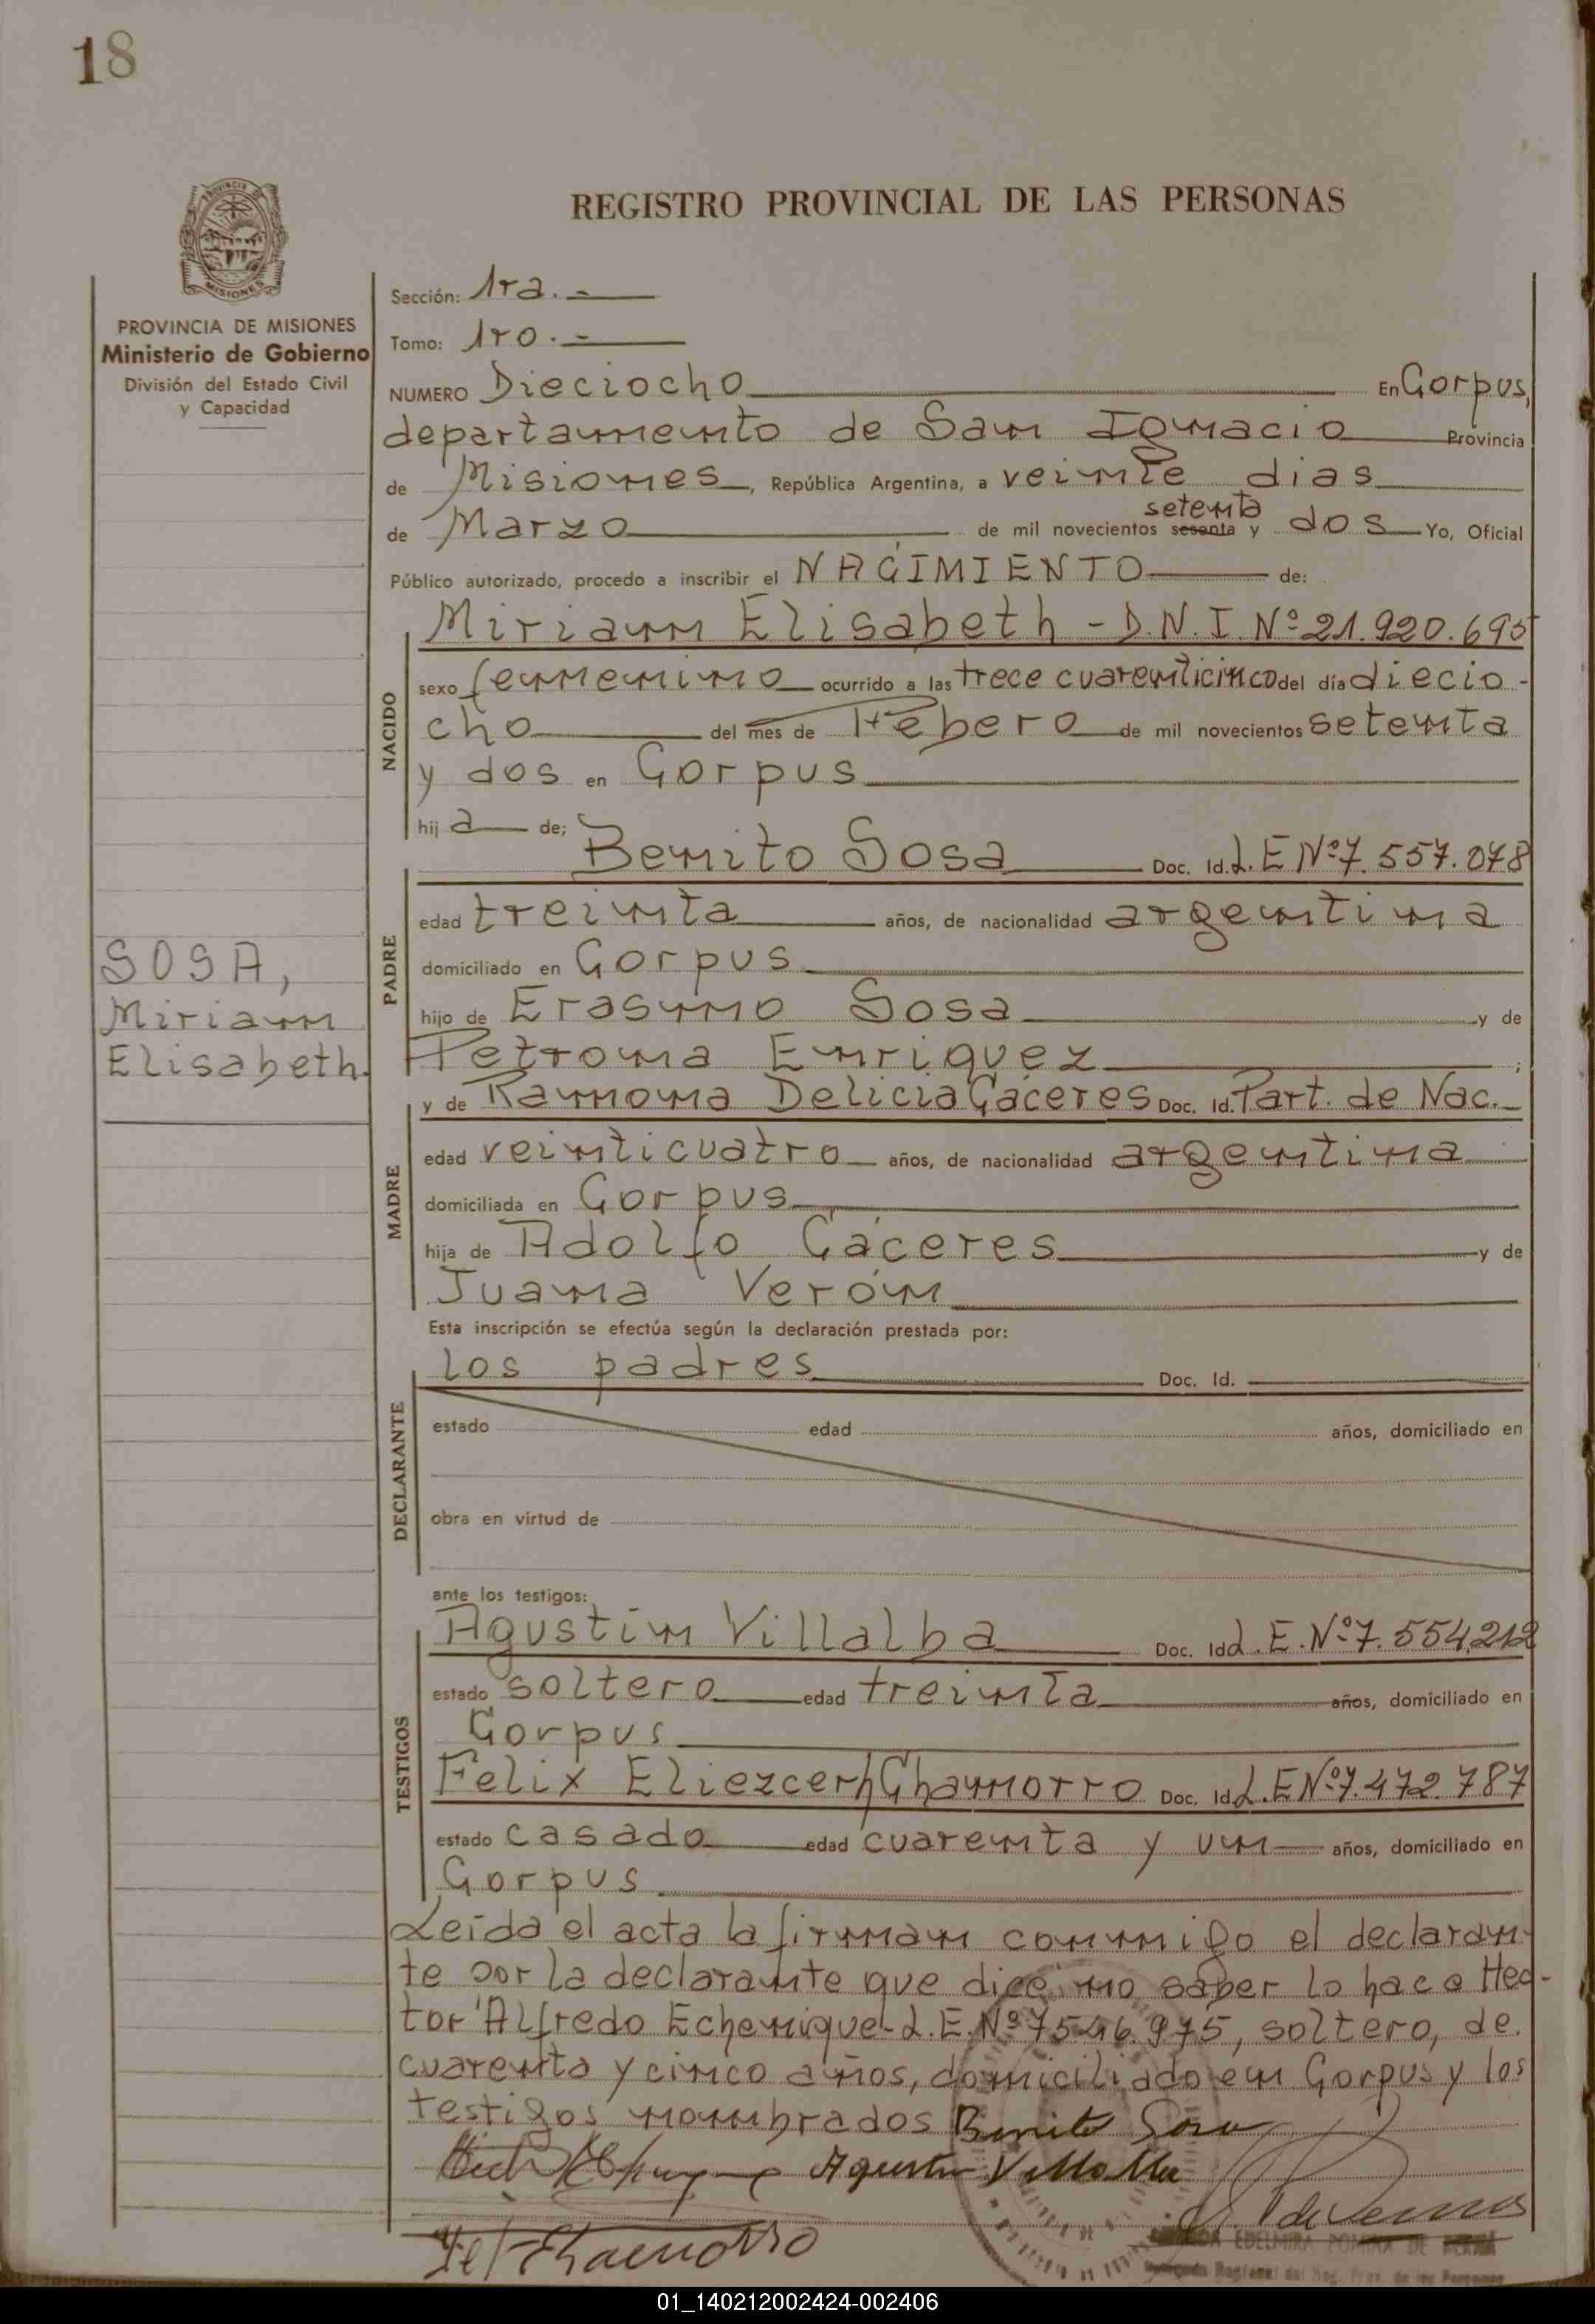 18
REGISTRO PROVINCIAL DE LAS PERSONAS
PROVINCIA DE MISIONES
Ministerio de Gobierno
División del Estado Civil
y Capacidad
SOSA,
Miriam
Elisabeth.
Sección: 1ra.-
Tomo: 1ro.-
NUMERO Dieciocho En Corpus,
departamento de San Ignacio Provincia
de Misiones, República Argentina, a veinte dias
de Marzo de mil novecientos sesenta setenta y dos Yo, Oficial
Público autorizado, procedo a inscribir el NACIMIENTO de:
NACIDO
Miriam Elisabeth - D.N.I. Nº 21.920.695
sexo femenino ocurrido a las trece cuarenticinco del día diecio-
cho del mes de Febero de mil novecientos setenta
y dos en Corpus
hija de;
PADRE
Benito Sosa Doc. Id. L.E Nº 7.557.078
edad treinta años, de nacionalidad argentina
domiciliado en Corpus
hijo de Erasmo Sosa y de
Petrona Enriquez ;
MADRE
y de Ramona Delicia Cáceres Doc. Id. Part. de Nac.
edad veinticuatro años, de nacionalidad argentina
domiciliada en Corpus
hija de Adolfo Cáceres y de
Juana Verón
Esta inscripción se efectúa según la declaración prestada por:
DECLARANTE
los padres Doc. Id.
estado edad años, domiciliado en
obra en virtud de
ante los testigos:
TESTIGOS
Agustín Villalba Doc. Id L.E. Nº 7.554.212
estado soltero edad treinta años, domiciliado en
Corpus
Felix Eliezcerh Chamorro Doc. Id L.E Nº 7.472.787
estado casado edad cuarenta y un años, domiciliado en
Corpus
Leída el acta la firman conmigo el declaran-
te por la declarante que dice no saber lo hace Hec-
tor Alfredo Echenique - L.E. Nº 7546.975, soltero, de
cuarenta y cinco años, domiciliado en Corpus y los
testigos nombrados Benito Sosa
Agustin Villalba
Fel Chamorro
EDELMIRA DE
01_140212002424-002406